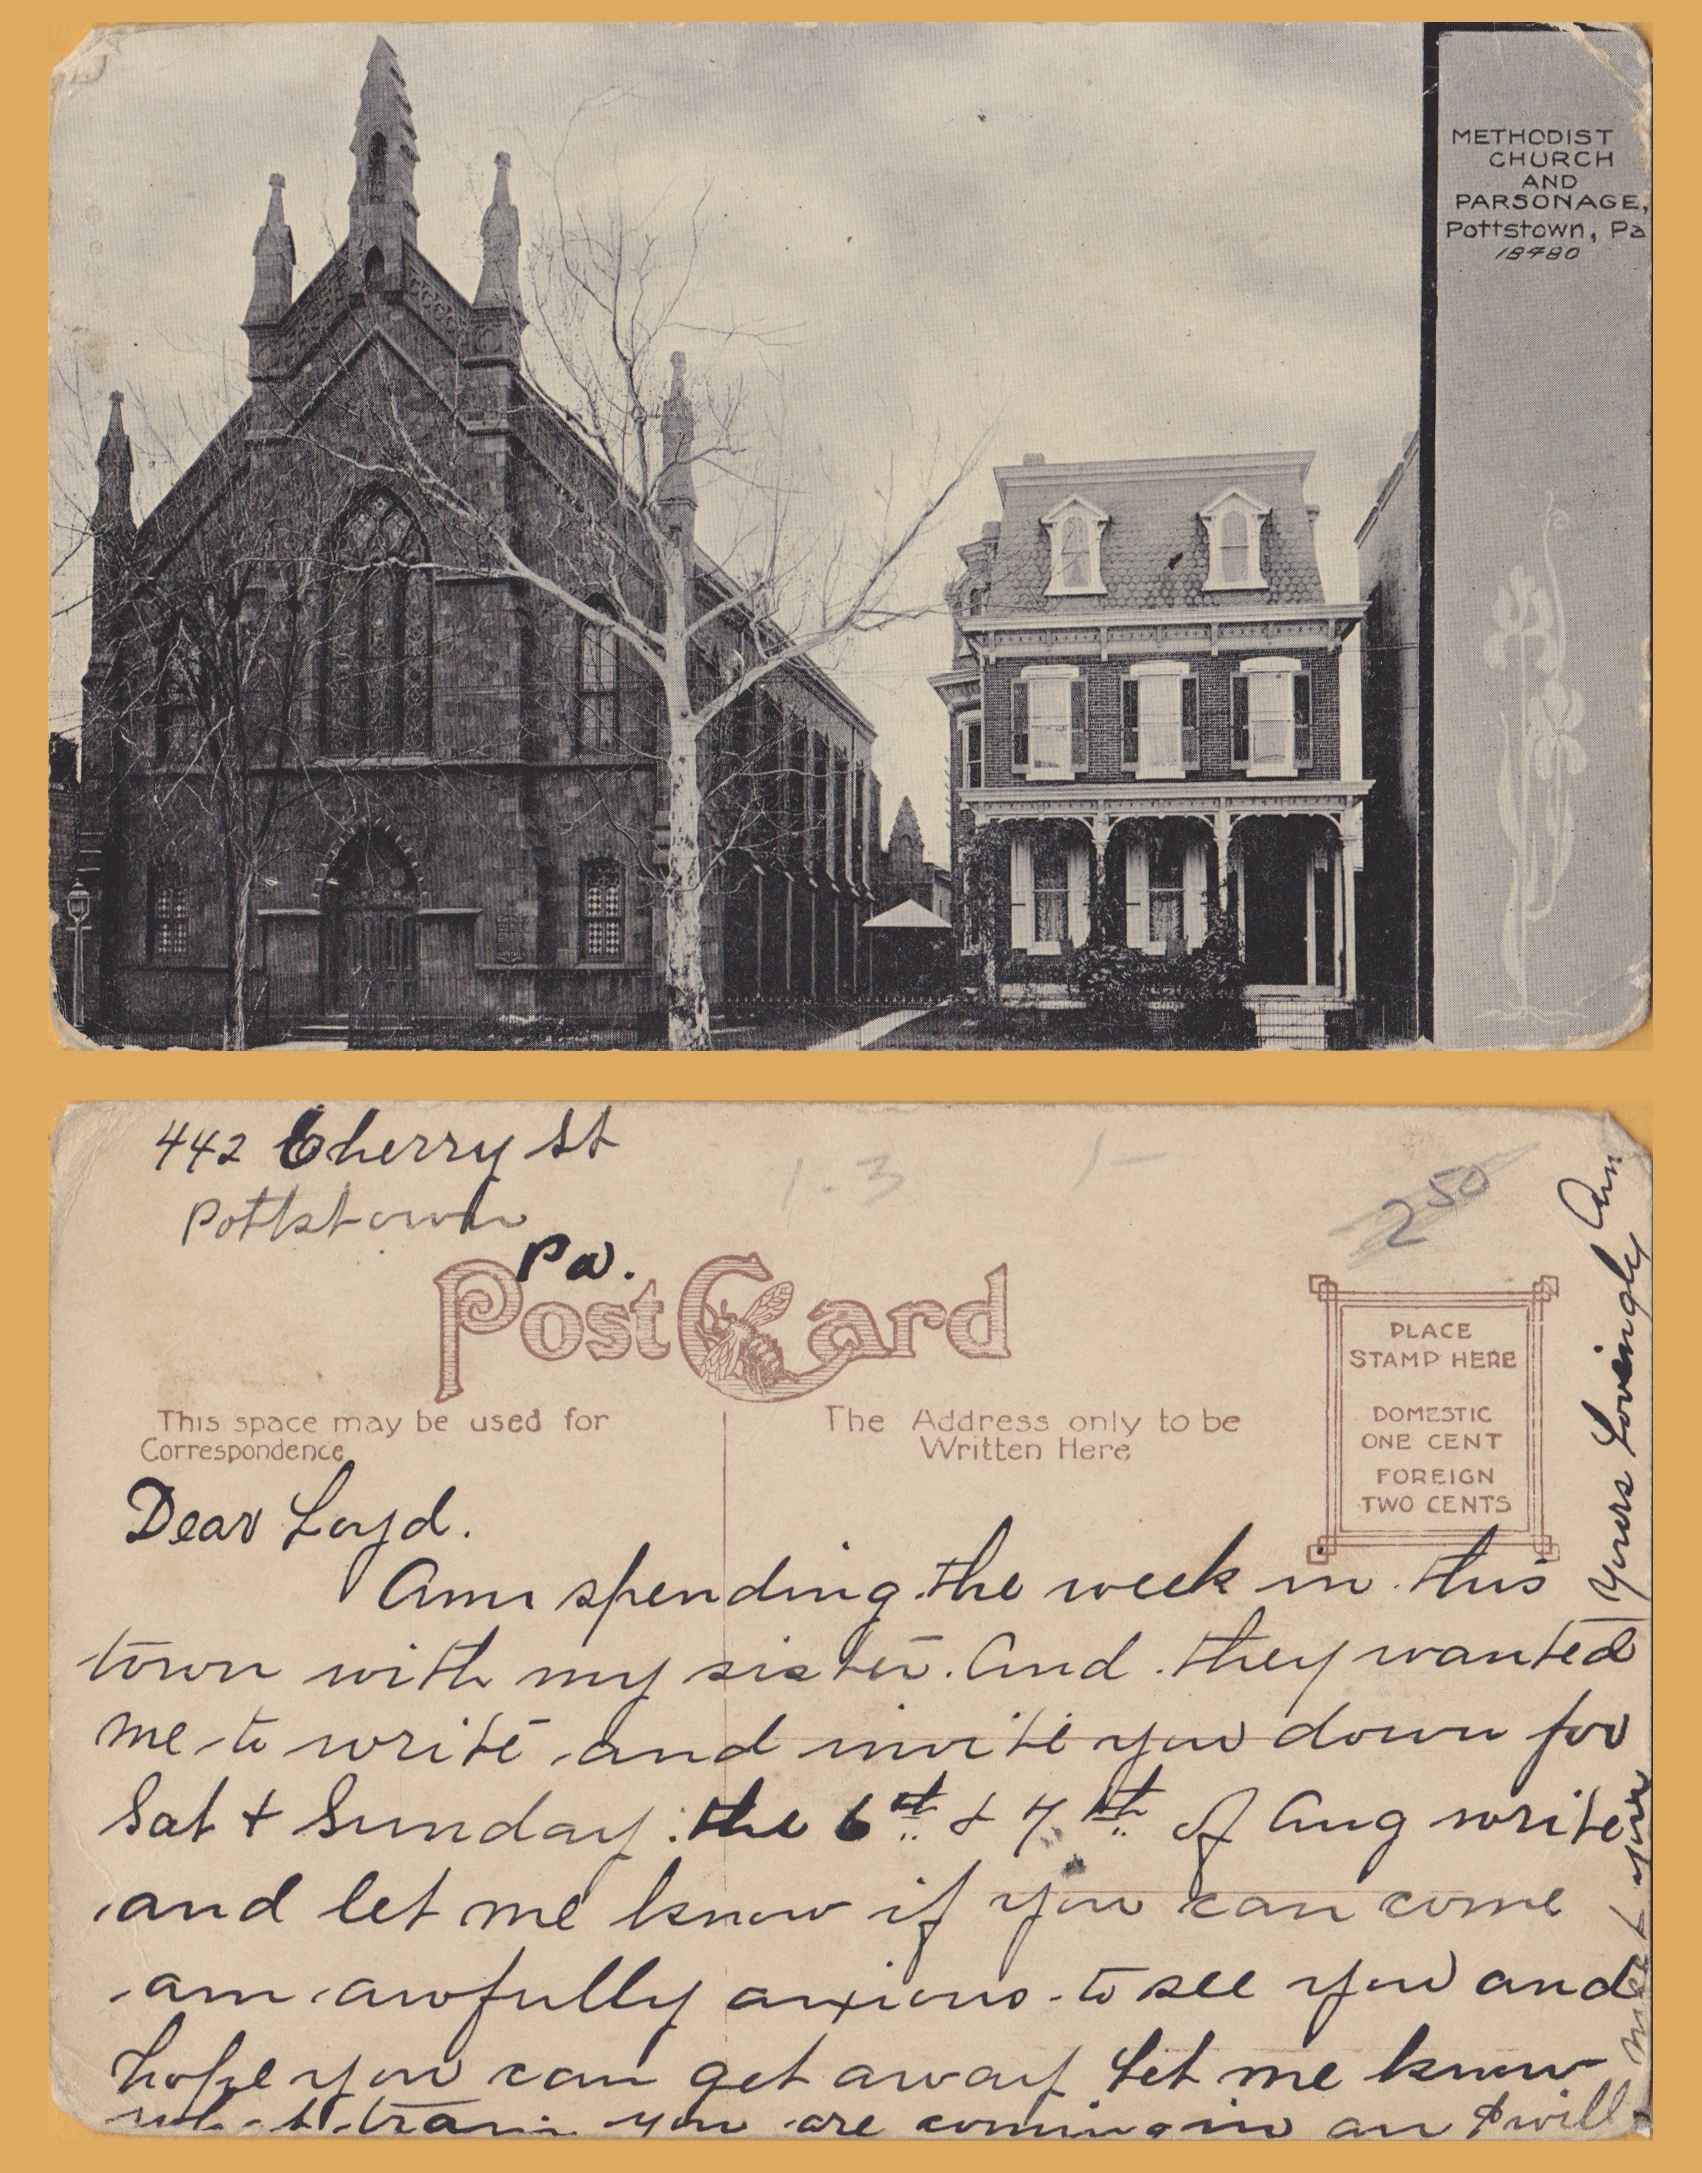 METHODIST
CHURCH
AND
PARSONAGE,
Pottstown, Pa
18480
442 Cherry St
Pottstown
Pa.
1-3
1-
2 50
Post Card
This space may be used for
Correspondence
The Address only to be
Written Here
PLACE
STAMP HERE
DOMESTIC
ONE CENT
FOREIGN
TWO CENTS
Dear Loyd.
Am spending the week in this
town with my sister. And they wanted
me to write and invite you down for
Sat + Sunday the 6th & 7th of Aug write
and let me know if you can come
am awfully anxious to see you and
hope you can get away Let me know
what train you are coming in on & will
meet you
Yours Lovingly